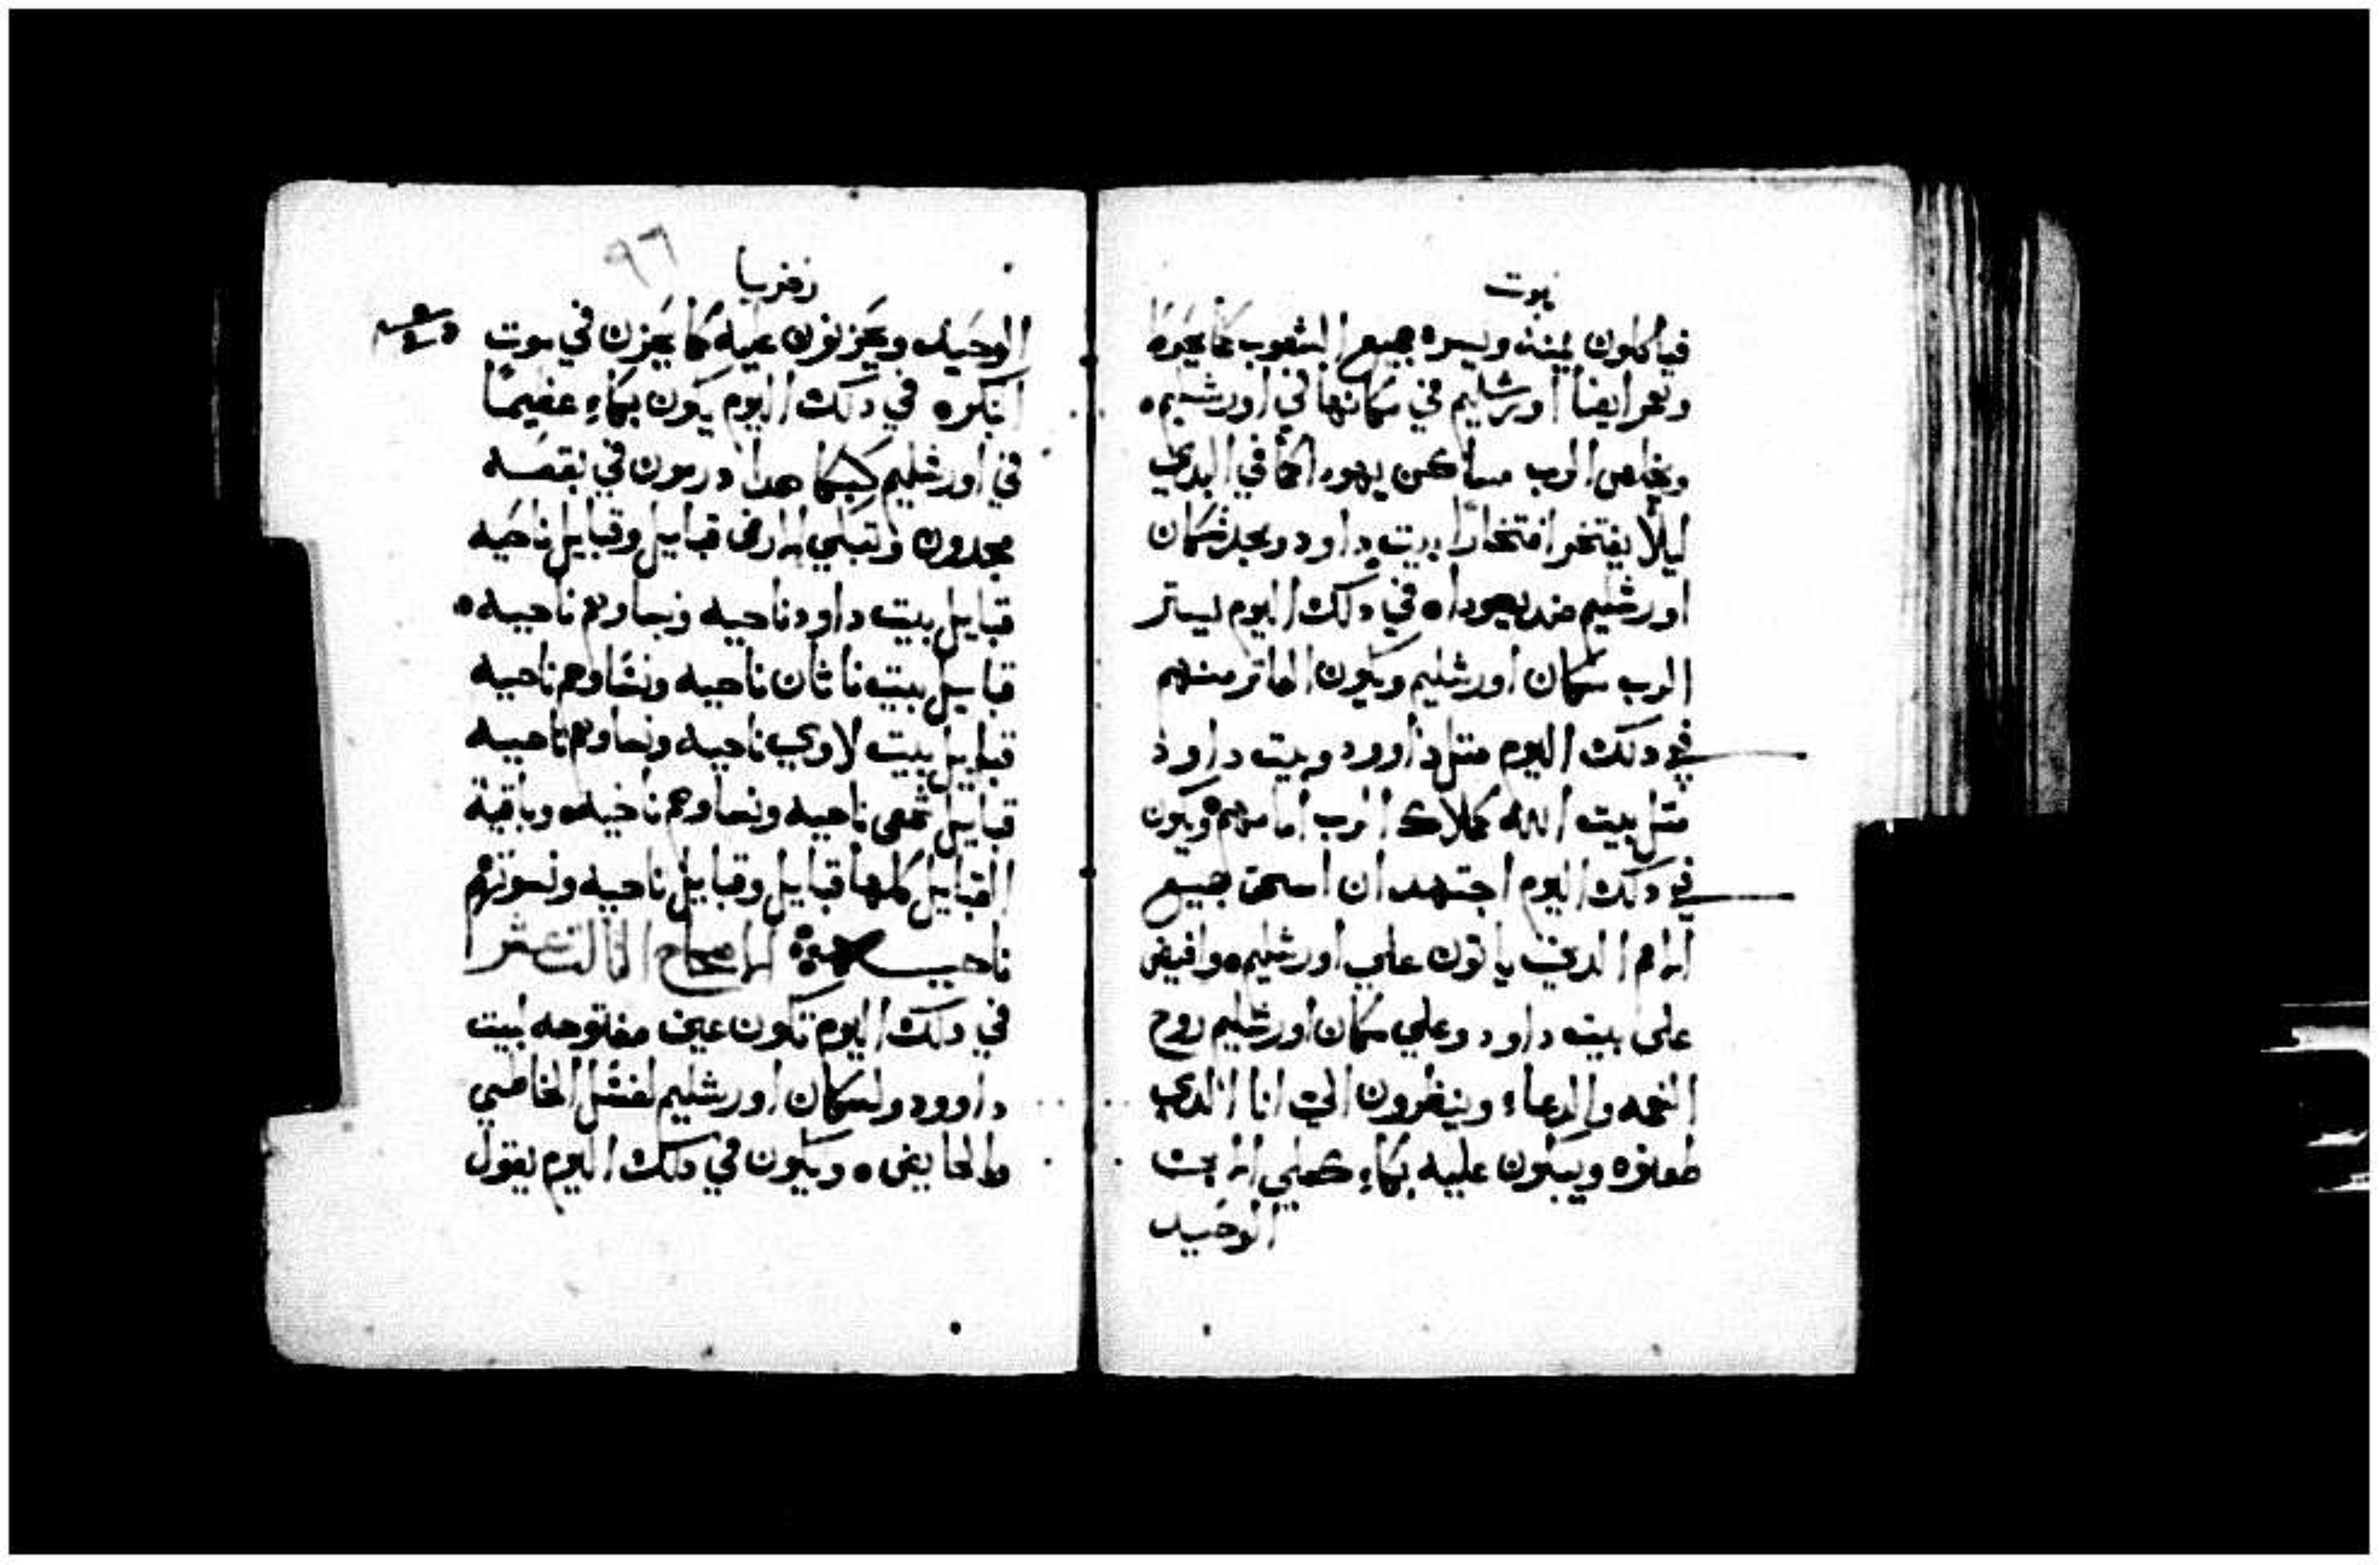 نبوت
فياكلون يمنه ويسره جميع الشعوب كما يحوط
وتعمر ايضا اورشليم في مكانها في اورشليم.
ويخلص الرب مساكن يهودا كما في البدي
ليلا يفتخر افتخارا بيت داود ومجد سكان
اورشليم ضد يهودا ه في دلك اليوم ليستر
الرب سكان اورشليم ويكون العاتر منهم
في دلك اليوم متل داوود وبيت داود
متل بيت الله كملاك الرب امامهم ه ويكون
في دلك اليوم اجتهد ان اسحق جميع
الامم الدين ياتون علي اورشليم ه وافيض
على بيت داود وعلي سكان اورشليم روح
النعمه والدعاء وينظرون الي انا الدي
طعنوه ويبكون عليه بكاء كعلي الابن
الوحيد
زخريا
٩٦
الوحيد ويحزنون عليه كما يحزن في موت
البكره في دلك اليوم يكون بكاء عظيما
في اورشليم كبكا هدادرمون في بقعه
مجدون وتبكي الارض قبايل وقبايل ناحيه
قبايل بيت داود ناحيه ونساوهم ناحيه ه
قبايل بيت ناثان ناحيه ونساوهم ناحيه
قبايل بيت لاوي ناحيه ونساوهم ناحيه
قبايل شمعي ناحيه ونساوهم ناحيه ه وباقية
القبايل كلها قبايل وقبايل ناحيه ونسوتهم
ناحيه الاصحاح التالت عشر
في دلك اليوم تكون عين مفتوحه لبيت
داوود ولسكان اورشليم لغسل الخاطي
والحايض ه ويكون في دلك اليوم يقول